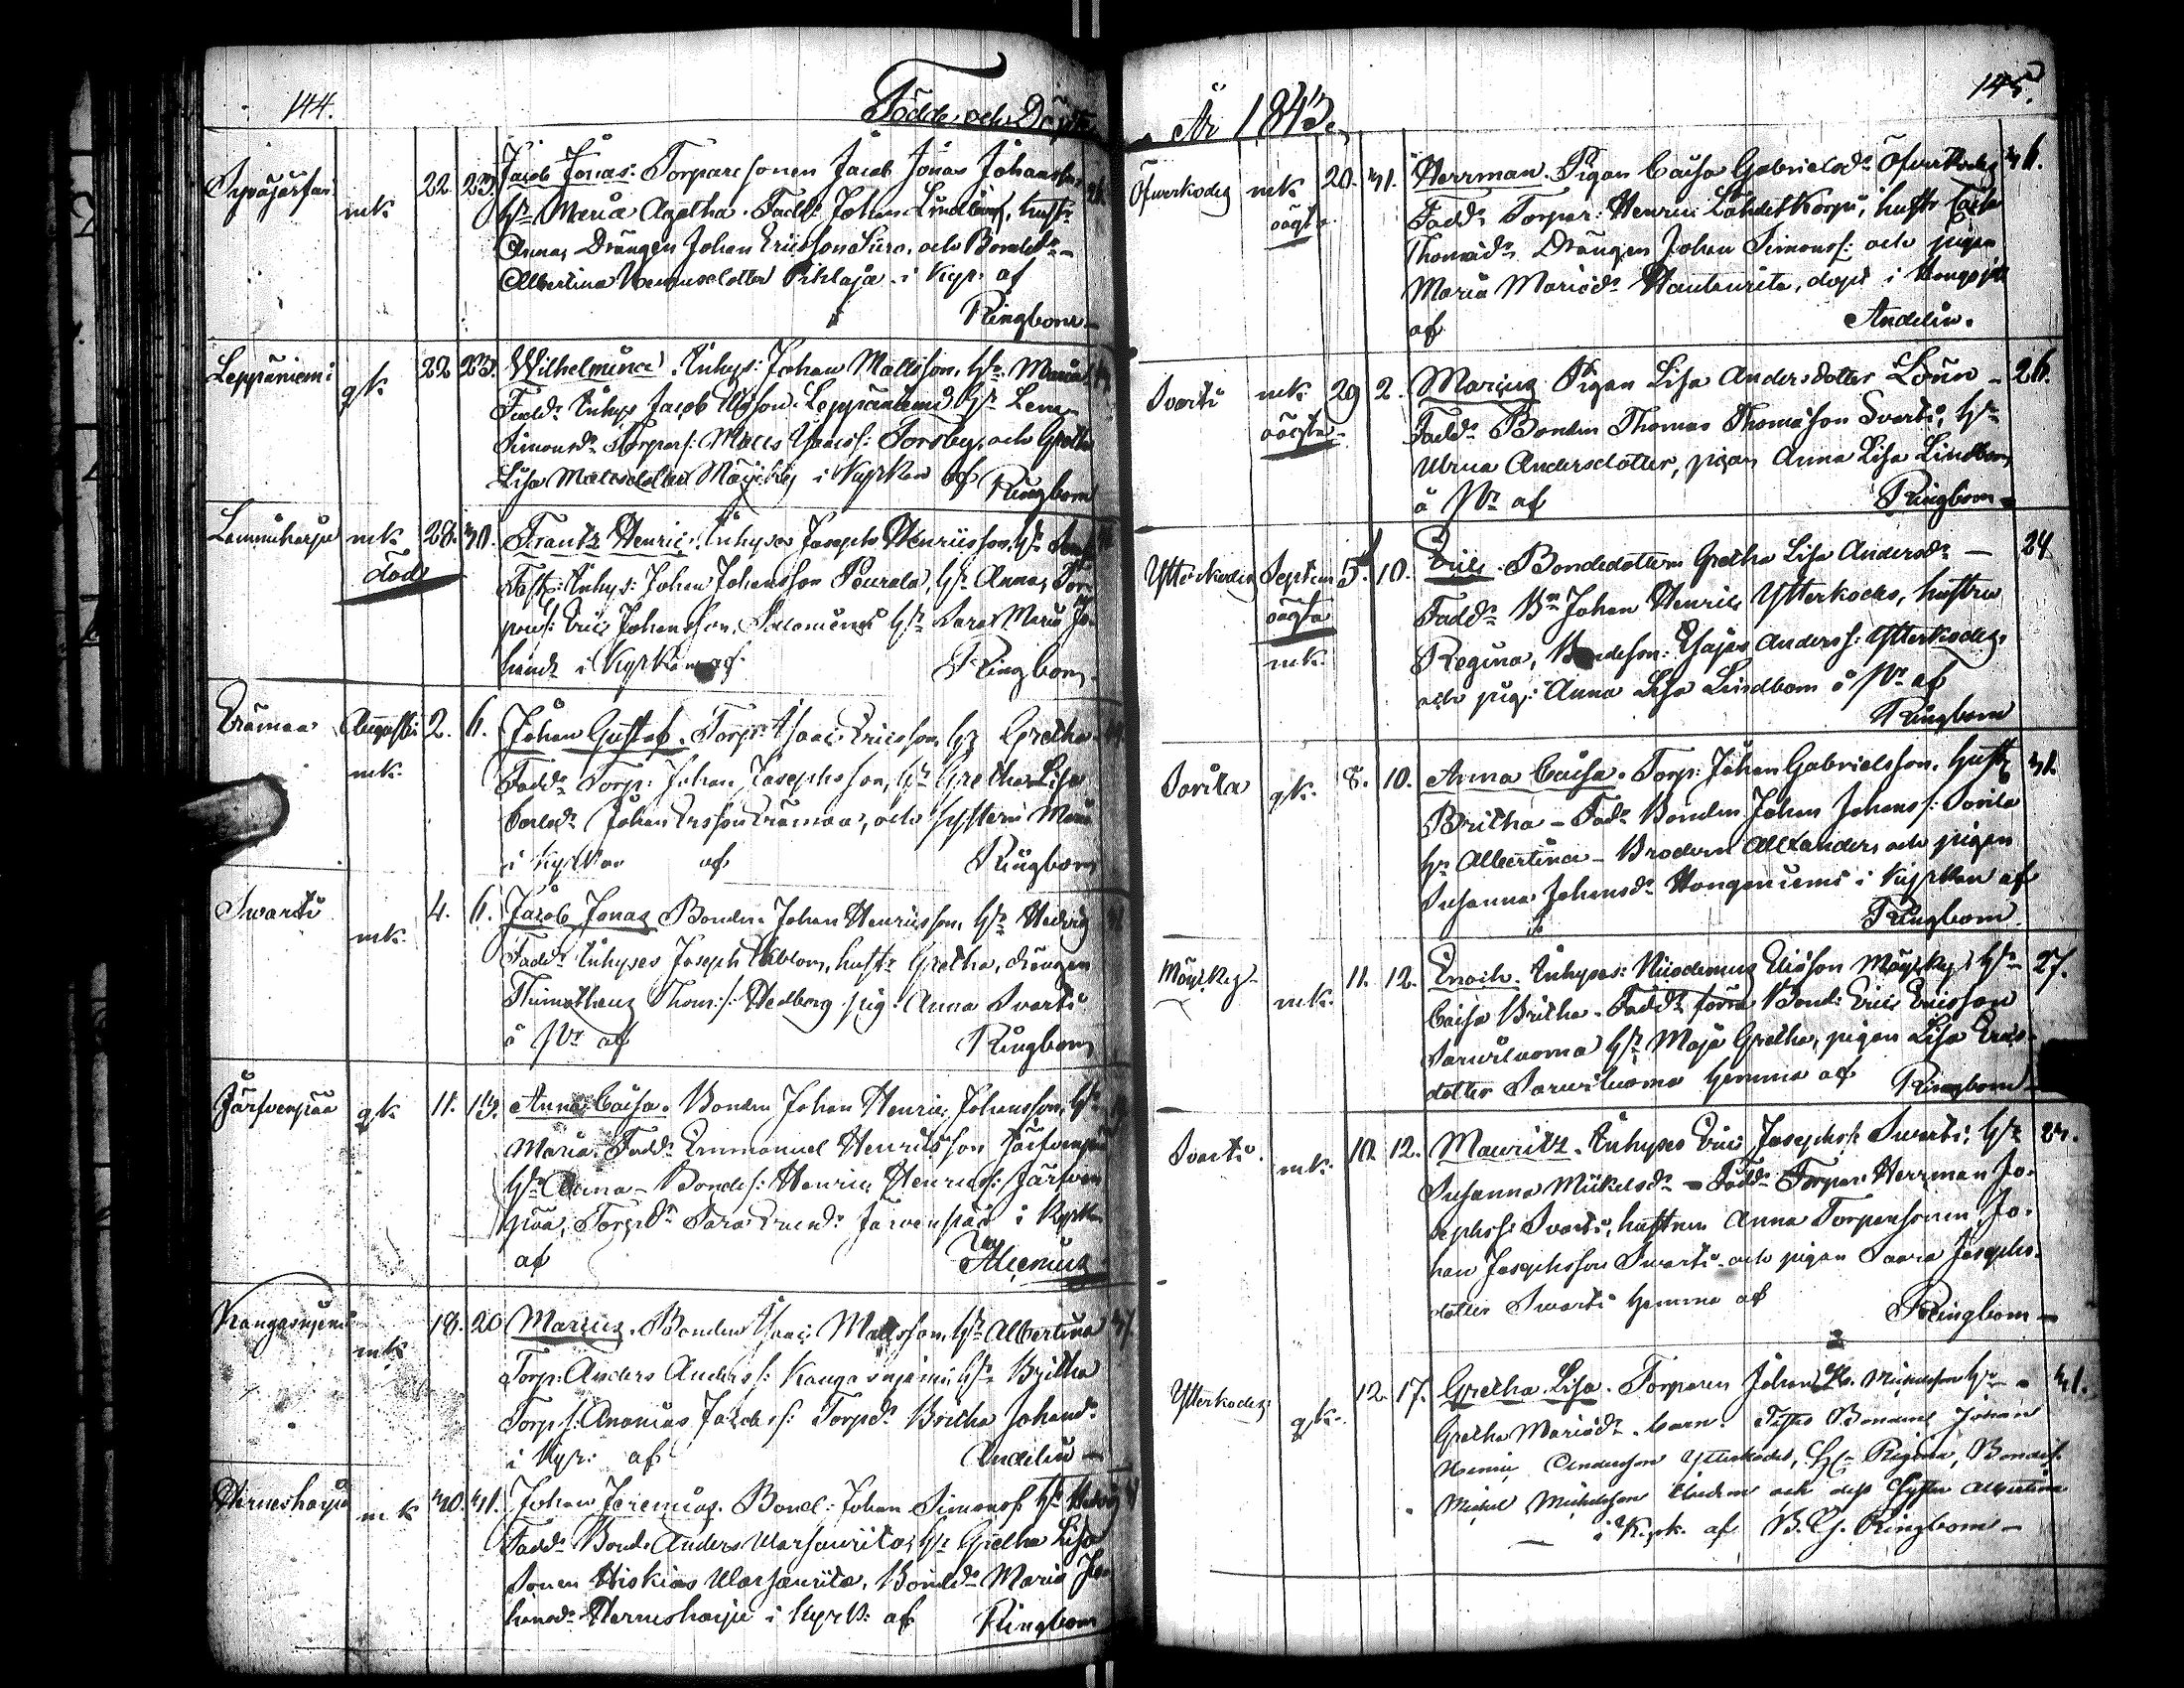 144.
Födde och Döpte
Syväjärfvi mk 22. 23. Jacob Jonas. Torparesonen Jacob Jonas Johansson
h:n Maria Agatha. Fadd: Johan Lindbom, hustr:
Anna, Drängen Johan Ericsson och Bonded:
Albertina dotter Pihlaja i Kyr: af
Ringbom
Leppäniemi qk 22 23. Wilhelmina. Inhys: Johan Mattsson, h:n Maria
Fadd: Inhys Jacob Leppäniemi h:n Lena
Simonsd: Torpars: Matts Isaacs: Torsby, och Gretha
Lisa Mattsdotter i Kyrkan af Ringbom
Lamminharju mk 28. 30. Frantz Henric. Inhyses Joseph Henricsson, h:n
död Inhys: Johan Johansson Peurala, h:n Anna, Tor
pars: Eric Johansson, h:r Sara Maria Jo
hansd: i Kyrkan af Ringbom
Erämaa Augusti 2. 6. Johan Gustaf. Torp: Isaac Ericsson, h:n Gretha
mk. Fadd: Torp: Johan Josephsson, h:n Gretha Lisa
Johan Ersson Erämaa, och systern Maria
i Kyrkan af Ringbom
Swarti mk. 4. 6. Jacob Jonas Bonden Johan Henricsson, h:n Hedvig
Fadd: Inhyses Joseph Ekblom, hustr: Gretha, drängen
Thimotheus Thoms: Hedberg pig: Anna Svarti
å Pr: af Ringbom
Järfvenpää qk 11. 13. Anna Caisa. Bonden Johan Henric Johansson, h:n
Maria. Fadd: Emmanuel Henricsson Järfvenpää
h:n Anna - Bondes: Henric Henrics: Järfven
pää, Torpd: Sara Ericsd: Järvenpää i Kyrk:
af Alcenius
Kangasniemi mk 18. 20 Marcus. Bonden Isaac Mattsson, h:n Albertina
Torp: Anders Anders: Kangasniemi, h:n Britha
Torps: Ananias Jacobs: Torpd: Britha Johansd:
i Kyr: af Andelin
Hernesharju mk 30. 31. Johan Jeremias. Bond: Johan Simonss: h:n Hedvig
Fadd: Bond: Anders h:n Gretha Lisa
Sonen Hiskias Bonded: Maria Jo
hansd: Herneharju i Kyrk: af Ringbom
År 1843. 145.
Öfverkodes mk 20. 31. Herrman. Pigan Caisa Gabrielsd: Öfverkodes 36.
oägta Fadd: Torpar: Henric Lähdekorpi, hustr: Caisa
Thomasd: Drängen Johan Simonss: och pigan
Maria Mariæd: Hautaviita, döpt i Hongajoki
af Andelin.
Svarti mk 29 2. Marcus Pigan Lisa Andersdotter - 26.
oägta Fadd: Bonden Thomas Thomasson Svarti, h:n
Ulrica Andersdotter, pigan Anna Lisa Lindbom
å Pr: af Ringbom
Ytterkodes Septem 5. 10. Eric. Bondedottern Gretha Lisa Andersd: - 24
oägta Fadd: B:n Johan Henric Ytterkodes, hustru
mk. Regina, Bondeson: Esajas Anderss: Ytterkodes
och pig: Anna Lisa Lindbom å Pr: af
Ringbom
Sorila qk. 8. 10. Anna Caisa. Torp: Johan Gabrielsson, hustr 31.
Britha - Fad: Bonden Johan Johanss: Sorila
h:n Albertina - Brodern Alexander, och pigan
Susanna Johansd: Honganiemi i Kyrkan af
Ringbom.
mk. 11. 12. Enoch. Inhyses: Nicodemus Eliasson h:n 27.
Caisa Britha. Fadd: förra Bond: Eric Ericsson
Sarviluoma h:n Maja Gretha, pigan Lisa Erics-
dotter Sarviluoma hemma af Ringbom
Svarti. mk. 10. 12. Mauritz. Inhyses Eric Josephss: Svarti, h:n 24.
Susanna Mickelsd: - Fadd: Torpar: Herrman Jo-
sephss: Svarti, hustrun Anna Torparsonen Jo-
han Josephsson Svarti och pigan Saara Josephs-
dotter Svarti hemma af Ringbom
Ytterkodes qk. 12. 17. Gretha Lisa. Torparen Johan H. Michelsson h:n 31.
Gretha Mariæd: barn. Test: Bonden Johan
Henric Andersson Ytterkodes, H:n Regina, Bondes:
Michel Michelsson och dess Syster Albertina
i Kyrk: af B. G. Ringbom